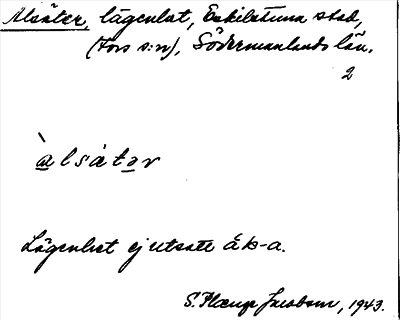 Alsäter, lägenhet, Eskilstuna stad,
(Fors s:n), Södermanlands län.
2
àlsàtər
Lägenhet ej utsatt å k-a.
S. Plænge Jacobson, 1943.